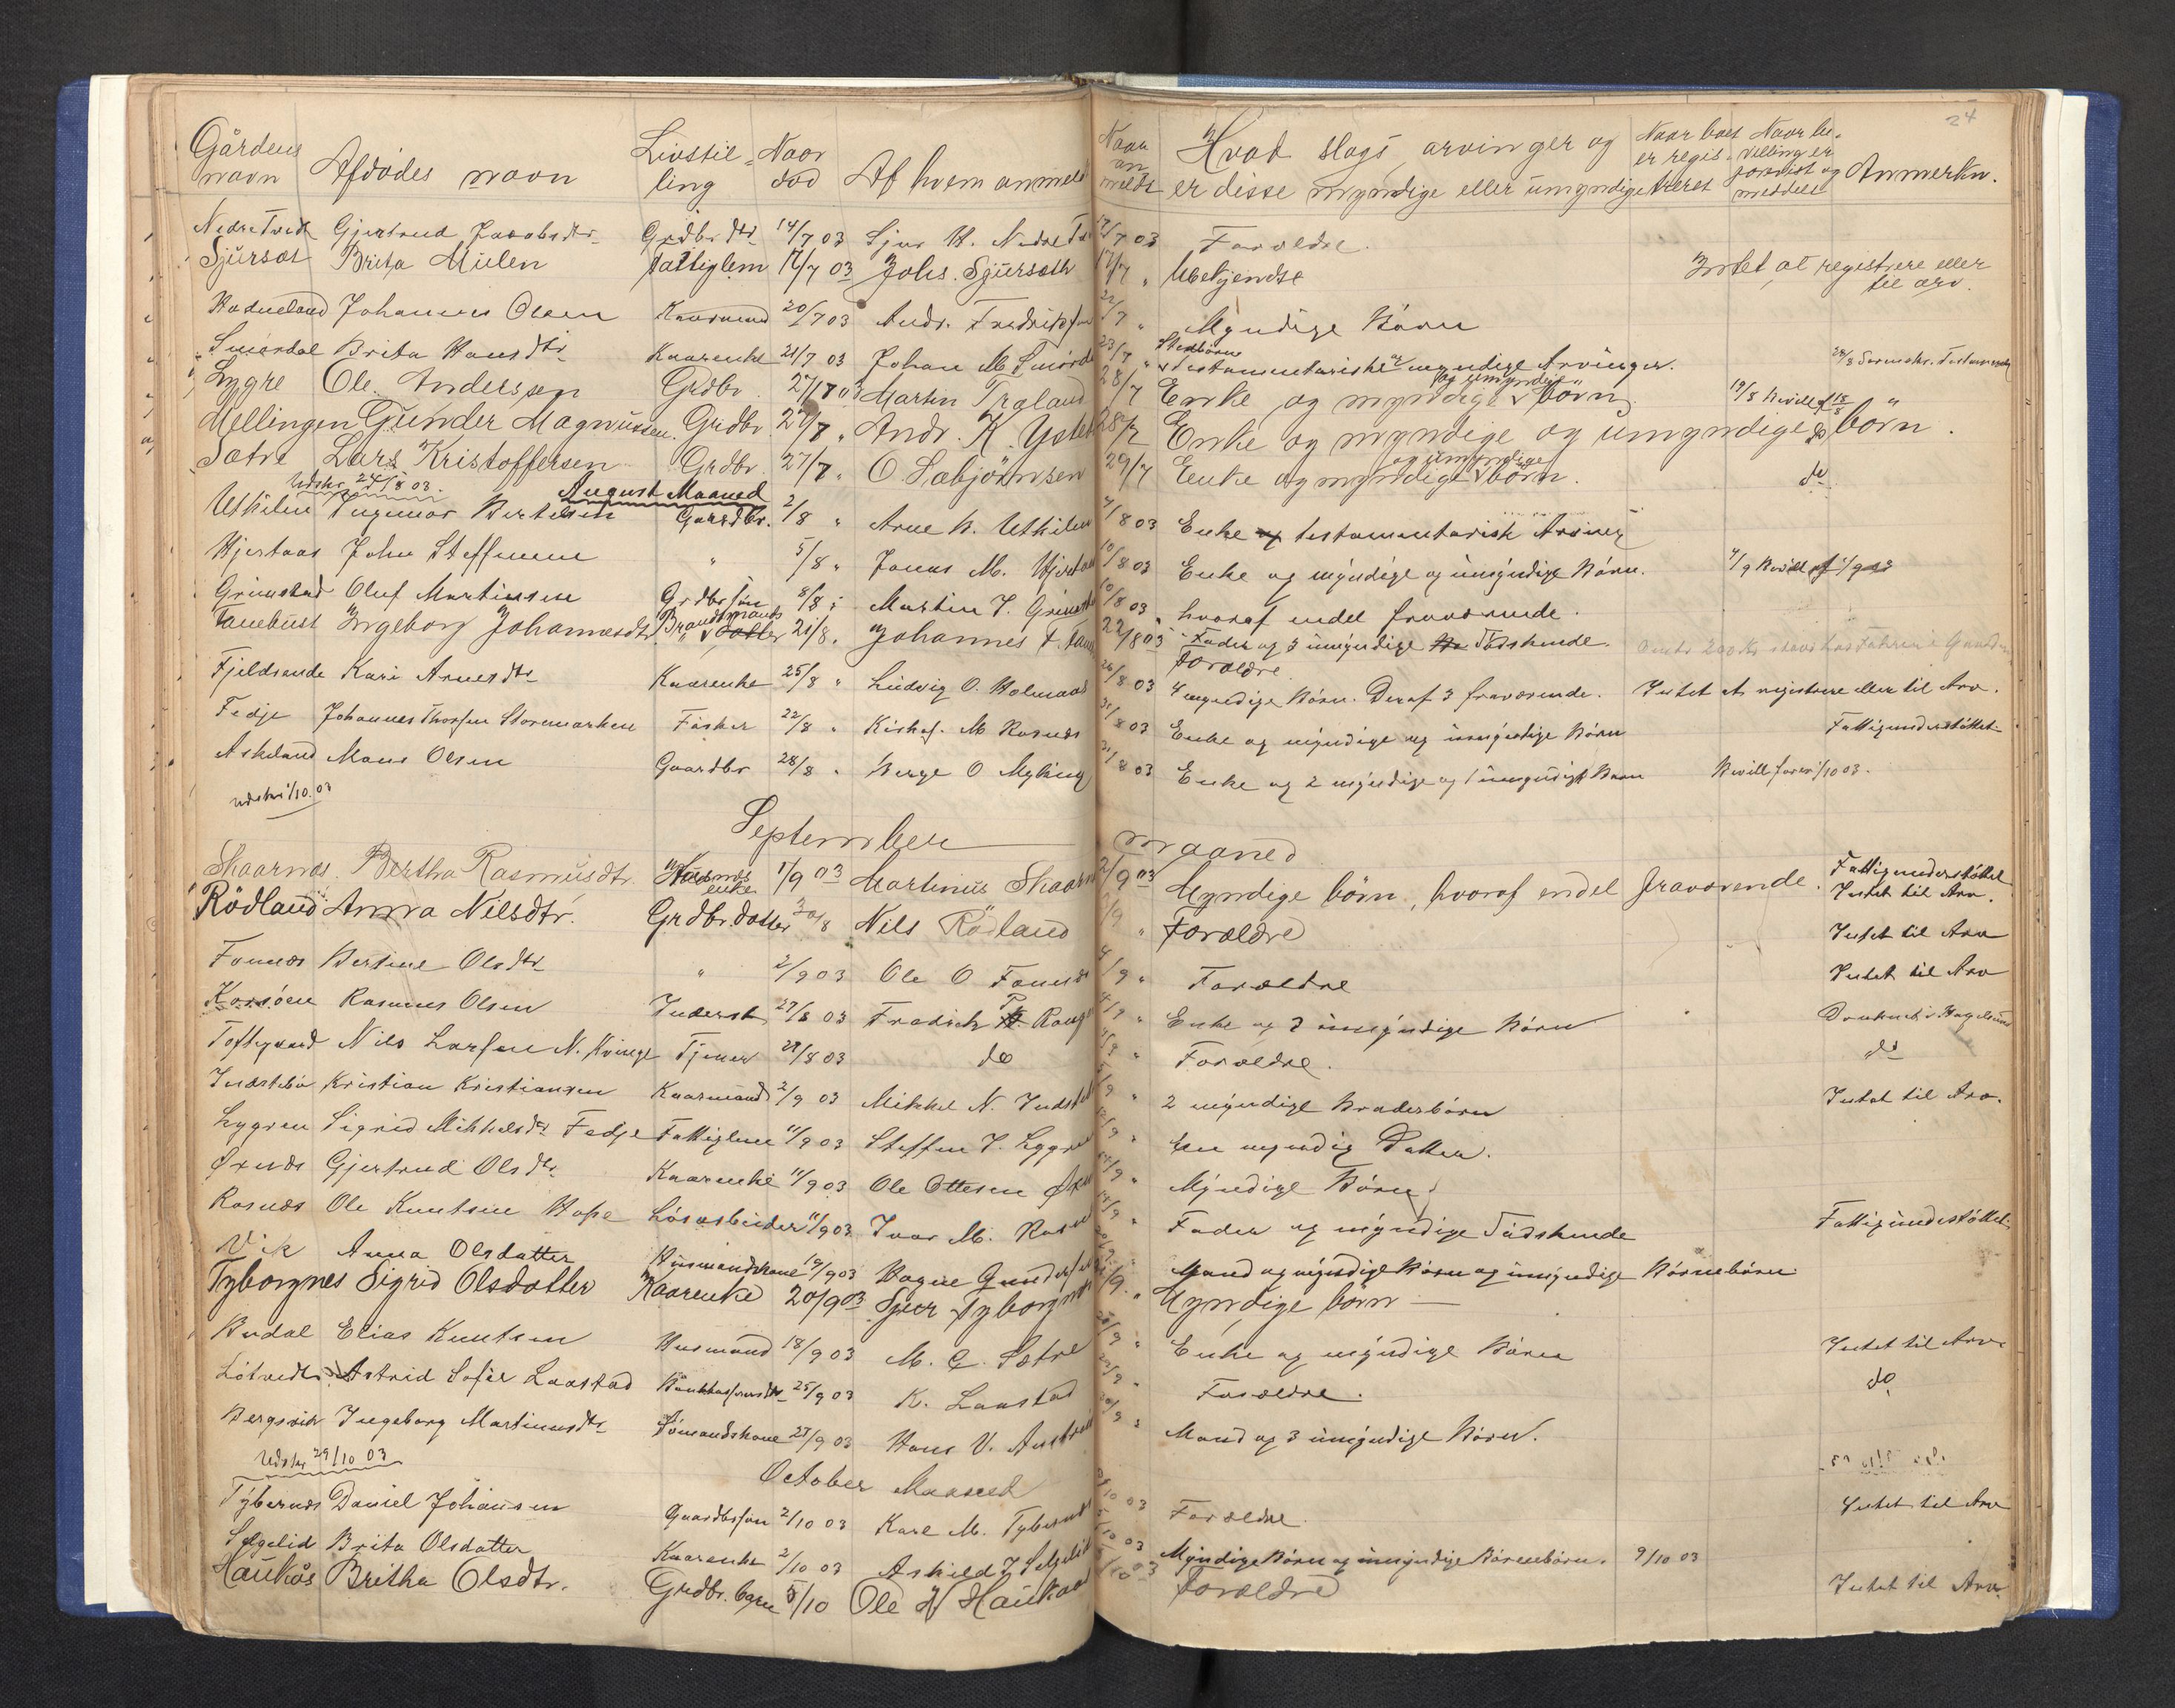 24
Gårdens navn Afdødes navn Livstil-ling Naar død Af hvem anmeldt Naar an meldt Hvad slags arvinger og er disse myndige eller umyndige Naar boet er regis-treret Naar be-villing er forevist og meddelt Anmerkn.
Nedre Tvedt Gjertrud Jacobsdtr Grdbr dtr 14/7 03 Sjur H. Nedre 17/7 03 Forældre.
Sjursæt Brita Mülen Fattiglem 17/7 03 Johs. Sjürseth 17/7 " Ubekjendte Intet at registrere eller til arv.
Johannes Olsen Kaarmand 20/7 03 Andr. Fredriksen 22/7 " Myndige Børn
Smørdal Brita Hansdtr Kaarenke 21/7 03 Johan M Smørdal 23/7 " Testamentariske og myndige Arvinger. 28/8
Lygre Ole Anderssen Grdbr. 27/7 03 Martin Træland 28/7 Enke og myndige og umyndige børn 19/8 Bevill. af 18/8 "
Mellingen Gunder Magnussen. Grdbr. 27/7 " Andr. K. 28/7 Enke og myndige og umyndige børn. do
Sætre Lars Kristoffersen Grdbr. 27/7 " O. Sæbjörnsen 29/7 Enke og myndige og umyndige børn. do
Udskr. 24/8 03.
August Maaned
Uthilen Ingemar Bertelsen Gaardbr. 2/8 " Arne B. Uthilen 4/8 03 Enke og testamentarisk Arving
Hjertaas John Steffensen " 5/8 " Jonas M. Hjertaas 10/8 03 Enke og myndige og umyndige Børn. 4/9 Bevill. af 1/9 03
Grimstad Oluf Martinsen Grdbr søn 8/8 " Martin J. Grimstad 10/8 03 hvoraf endel fraværende.
Fader og 3 umyndige Sødskende.
Tanebust Ingeborg Johannesdtr. datter 21/8 " Johannes 22/8 03 Forældre
Fjeldsende Kari Arnesdtr Kaarenke 25/8 " Ludvig O. Holmaas 26/8 03 4 myndige Børn. Deraf 3 fraværende. Intet at registrere eller til Arv.
Fedje Johannes Thorsen Stormarken Fisker 22/8 " Kristof. M Rosnes 31/8 03 Enke og myndige og umyndige Børn Fattigunderstøttet
Askeland Mons Olsen Gaardbr 28/8 " Børge O Myking 31/8 03 Enke og 2 myndige og 1 umyndigt Barn Bevill. forev. 1/10 03.
Udskr 1/10. 03
September maaned
Skaarnæs. Bertha Rasmusdtr. enke 1/9 03 Martinus Skaarn 2/9 03 Myndige børn, hvoraf endel fraværende. Fattigunderstøttet Intet til Arv.
Rödland Anna Nilsdtr. Grdbr. datter 30/8 Nils Rödland " Forældre Intet til Arv
Fonnæs Bertine Olsdtr " 2/9 03 Ole O Fonnæs 4/9 " Forældre Intet til Arv
Korsöen Rasmus Olsen Inderst 27/8 03 Fredrik 4/9 " Enke og 3 umyndige Børn Druknet i Hagelsund
Toftegaard Nils Larsen N. Kvinge Tjener 27/8 03 do " Forældre. do
Indrebø Kristian Kristiansen Kaarmand 2/9 03 Mikkel N. 5/9 " 2 myndige Broderbørn Intet til Arv.
Lygren Sigrid Mikkelsdtr Fedje Fattiglem 11/9 03 Steffen J. Lygren " En myndig Datter.
Øxnæs Gjertrud Olsdtr Kaarenke 11/9 03 Ole Ottesen 14/9 " Myndige Børn
Rosnæs Ole Knutsen Hope Løsarbeider 11/9 03 Ivar M. Rosn 14/9 " Fader og myndige Sødskende Fattigunderstøttet
Vik Anna Olsdatter Husmandskone 19/9 03 Mand og myndige Børn og umyndige Børnebørn.
Tyborgnes Sigrid Olsdatter Kaarenke 20/9 03 Sjur Tyborgnes " Myndige børn —
Budal Elias Knutsen Husmand 18/9 03 M. E. Sætre " Enke og myndige Børn Intet til Arv.
Løtvedt Astrid Sofie Laastad 25/9 03 K. Laastad " Forældre. do
Bergsvik Ingeborg Martinusdtr Sømandskone 27/9 03 Hans V. " Mand og 3 umyndige Børn.
Udskr 29/10 03
October Maaned
Tybernæs Daniel Johansen Gaardbrsøn 2/10 03 Karl M. Tybernæs 03 Forældre. Intet til Arv
Sælgelid Brita Olsdatter Kaarenke 2/10 03 Askild J Sælgelid 03 Myndige Børn og umyndige Børnebørn. 9/10 03
Haukås Britha Olsdtr. Grdbr. barn 5/10 Ole N Haukaas Forældre Intet til Arv.